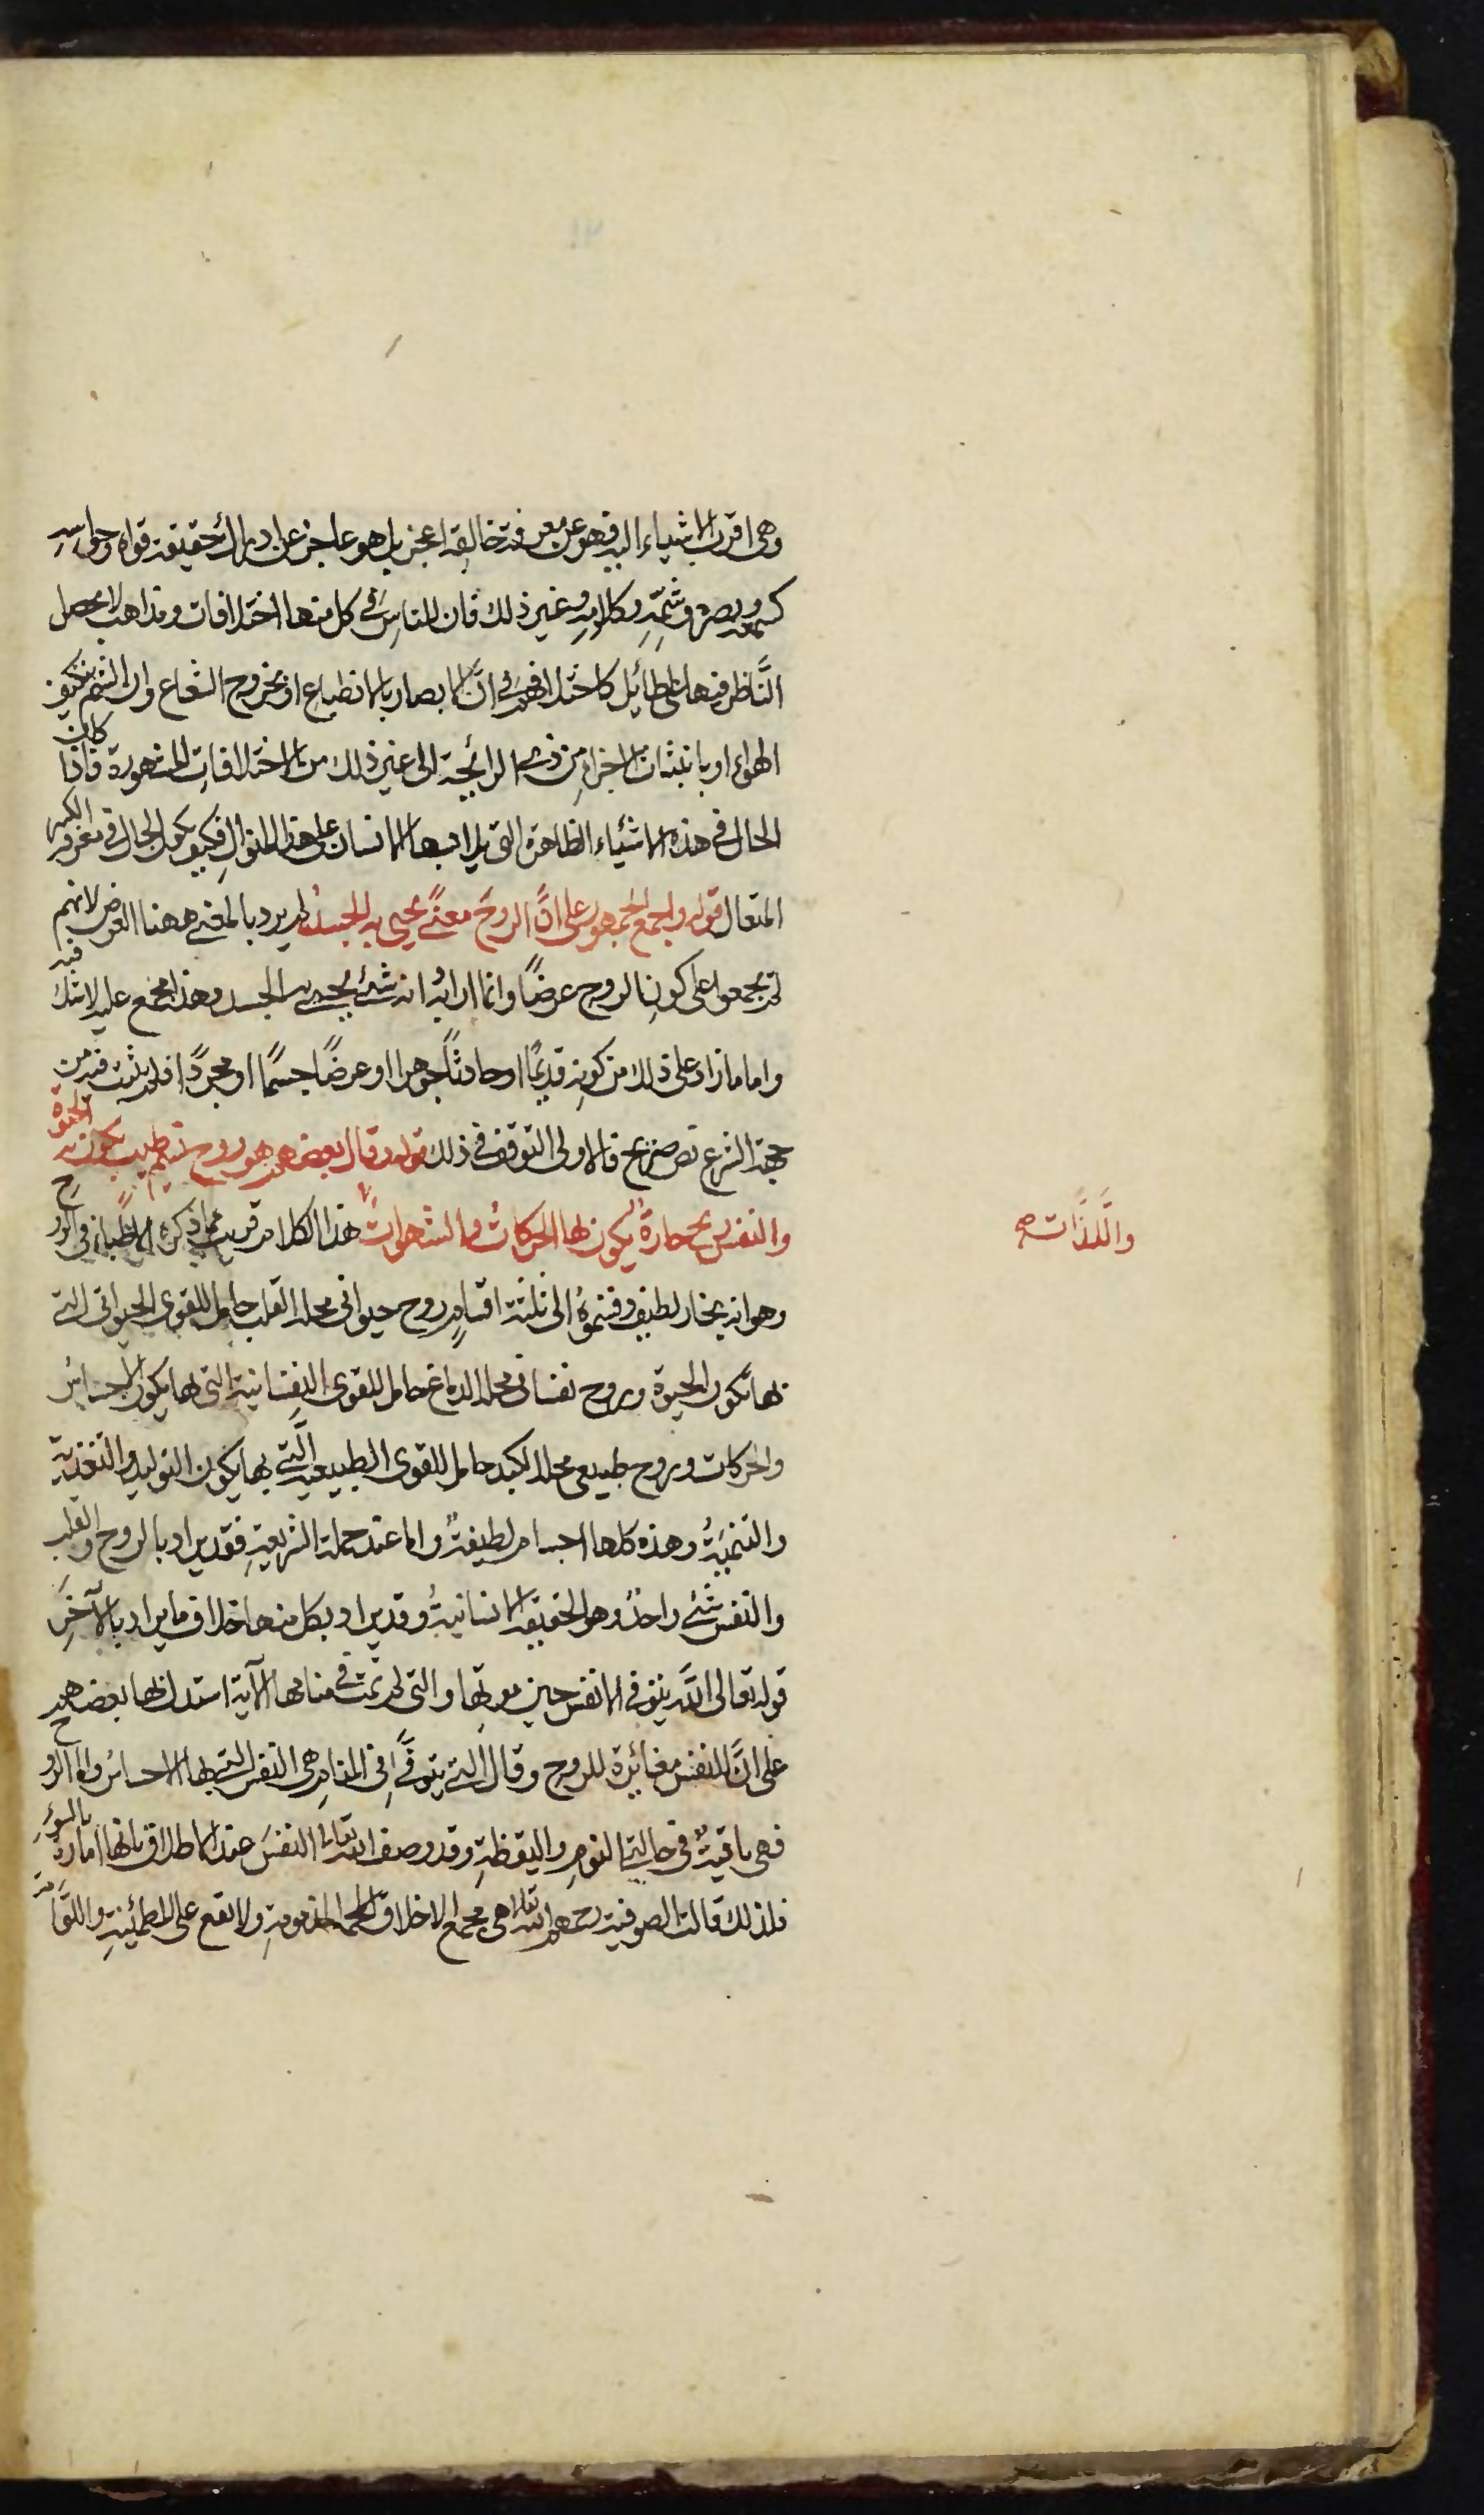 وهى اقرب الاشياء اليه فهو عن معرفة خالقه اعجز بل هو عاجز عن ادراك حقيقة قواه وحواسه
كسمعه وبصره وشمّه وكلامه وغير ذلك فان للناس فى كل منها اختلافات ومذاهب لا يحصل
النّاظر فيها على طائل كاختلافهم فى انّ الابصار بالانطباع او بخروج الشعاع وان الشم بتكيف
الهواء او بانبثاث الاجزاء من ذى الرائحة الى غير ذلك من الاختلافات المشهورة فاذا كان
الحال فى هذه الاشياء الظاهرة التى يلابسها الانسان على هذا المنوال فكيف يكون الحال فى معرفة الكبير
المتعال قوله واجمع الجمهور على انّ الروح معنًى يحيى به الجسد لم يرد بالمعنى ههنا العرض لانهم
لم يجمعوا على كون الروح عرضًا وانما اراد انه شئ يحيى به الجسد وهذا مجمع عليه لا شك فيه
واما ما زاد على ذلك من كونه قديمًا او حادثًا جوهرا او عرضًا جسمًا او مجردًا فلم يثبت فيه من
جهة الشرع نص صريح فالاولى التوقف فى ذلك قوله وقال بعضهم هو روح نسيم طيب يكون به الحيوة
والنفس ريح حارة يكون بها الحركات والشهوات هذا الكلام قريب مما ذكره الاطباء فى الروح
والّلذّات صح
وهو انه بخار لطيف وقسموه الى ثلثة اقسام روح حيوانى محله القلب حامل للقوى الحيوانى التى
بها تكون الحيوة وروح نفسانى محله الدماغ حامل للقوى النفسانية التى بها يكون الاحساس
والحركات وروح طبيعى محله الكبد حامل للقوى الطبيعية الّتى بها يكون التوليد والتغذية
والتنمية وهذه كلها اجسام لطيفة واما عند حملة الشريعة فقد يراد بالروح والقلب
والنفس شئ واحد وهو الحقيقة الانسانية وقد يراد بكل منها خلاف ما يراد بالآخر
قوله تعالى الله يتوفى الانفس حين موتها والتى لم تمت فى منامها الآية استدل بها بعضهم
على انّ النفس مغائرة للروح وقال التى يتوفّى فى المنام هى النفس التى بها الاحساس واما الروح
فهى باقية فى حالتى النوم واليقظة وقد وصف الله تعالى النفس عند الاطلاق بانها امارة بالسوء
فلذلك قالت الصوفية رحمهم الله تعالى هى مجمع الاخلاق المذمومة ولا تقع على المطمئنة واللوّامة